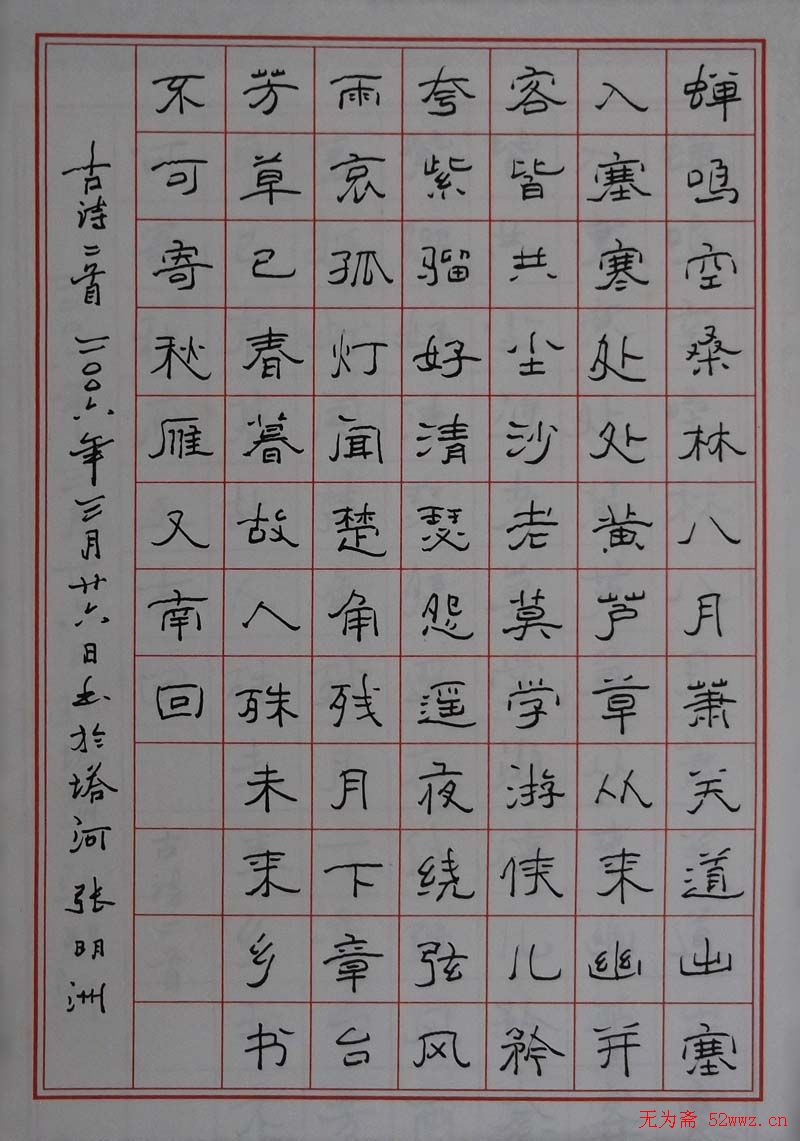 蝉鸣空桑林八月萧关道出塞
入塞寒处处黄芦草从来幽并
客皆共尘沙老莫学游侠儿矜
夸紫骝好清瑟怨遥夜绕弦风
雨哀孤灯闻楚角残月下章台
芳草已春暮故人殊未来乡书
不可寄秋雁又南回
古诗二首 二〇〇六年三月廿六日书於塔河 张明洲
无为斋 52wwz.cn